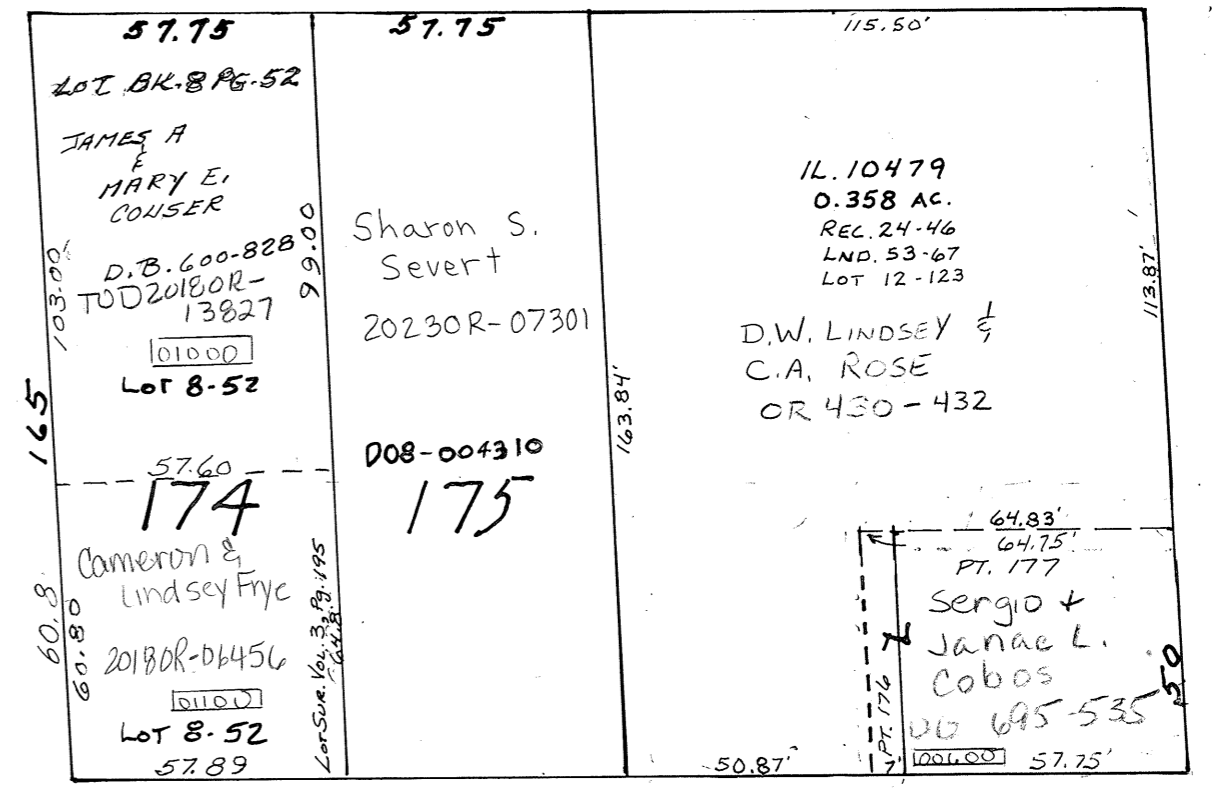 57.75
LOT BK.8 PG-52
JAMES A
&
MARY E.
CONSER
D.B.600-828
TOD20180R-
13827
01000
LOT 8-52
103.00'
99.00
165
57.60
174
Cameron &
Lindsey Frye
20180R-06456
01100
LOT 8-52
57.89
60.8
60.80
LOT SUR. VOL. 3, Pg. 195
64.8
57.75
Sharon S.
Severt
20230R-07301
D08-004310
175
163.84'
115.50'
IL. 10479
0.358 AC.
REC. 24-46
LND. 53-67
LOT 12-123
D.W. LINDSEY &
C.A. ROSE
OR 430-432
113.87'
64.83'
64.75'
PT. 177
Sergio &
Janae L.
Cobos
695-535
00600
57.75'
50
PT. 176
7'
50.87'